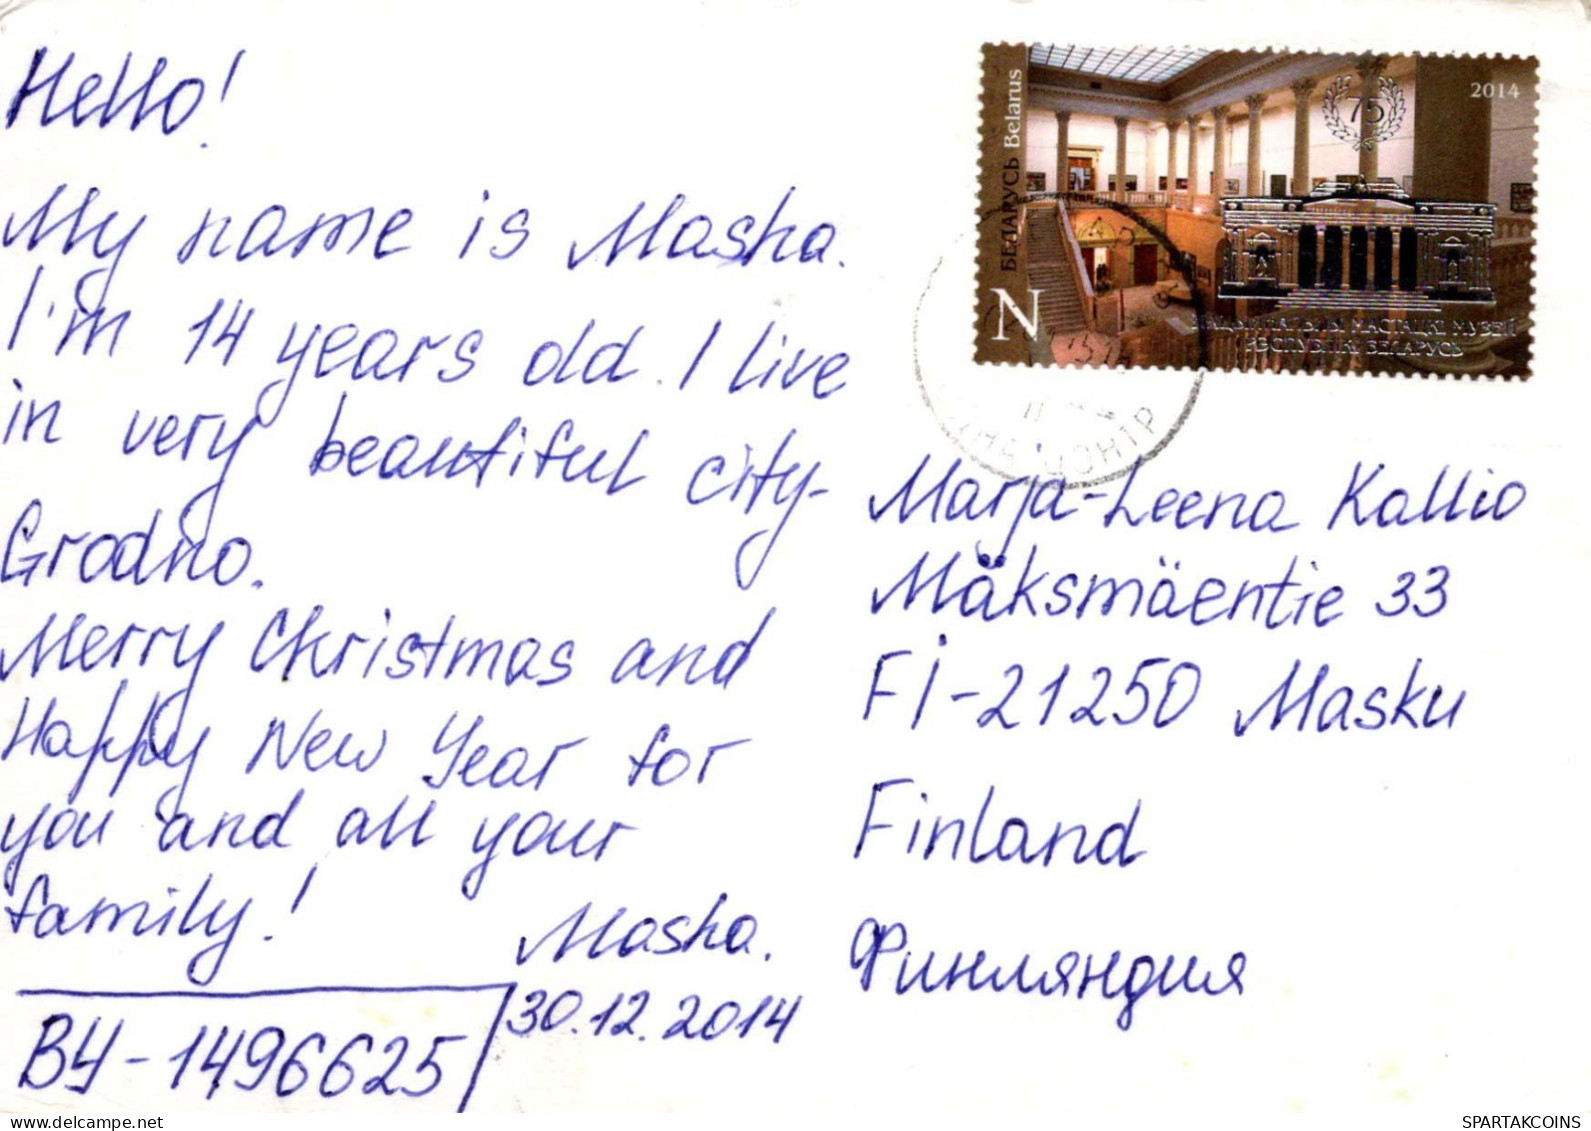 Hello!
My name is Masha.
I'm 14 years old. I live
in very beautiful city-
Grodno.
Merry Christmas and
Happy New Year for
you and all your
family!
Masha.
30.12.2014
BY-1496625
БЕЛАРУСЬ Belarus
N
75
2014
НАЦЫЯНАЛЬНЫ МАСТАЦКІ МУЗЕЙ
РЭСПУБЛІКІ БЕЛАРУСЬ
Marja-Leena Kallio
Mäksmäentie 33
FI-21250 Masku
Finland
Финляндия
www.delcampe.net
SPARTAKCOINS